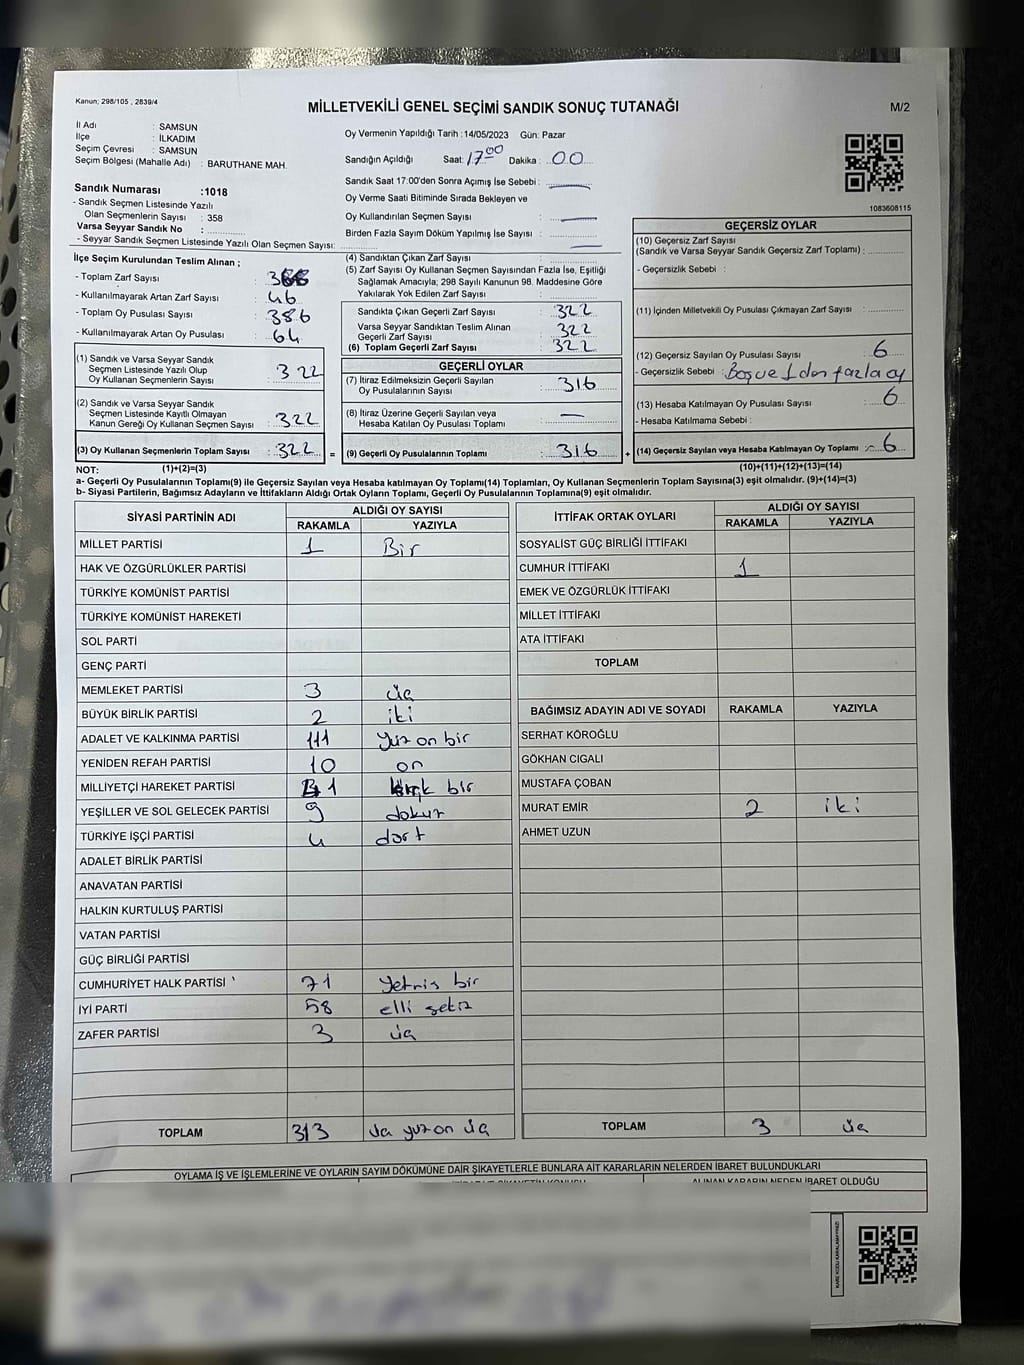 Kanun; 298/105 , 2839/4
MİLLETVEKİLİ GENEL SEÇİMİ SANDIK SONUÇ TUTANAĞI
M/2
İl Adı : SAMSUN
İlçe : İLKADIM
Seçim Çevresi : SAMSUN
Seçim Bölgesi (Mahalle Adı) : BARUTHANE MAH.
Sandık Numarası :1018
- Sandık Seçmen Listesinde Yazılı
Olan Seçmenlerin Sayısı : 358
Varsa Seyyar Sandık No :
- Seyyar Sandık Seçmen Listesinde Yazılı Olan Seçmen Sayısı:
Oy Vermenin Yapıldığı Tarih :14/05/2023 Gün: Pazar
Sandığın Açıldığı Saat: 17:00 Dakika : 00
Sandık Saat 17:00'den Sonra Açımış İse Sebebi : —
Oy Verme Saati Bitiminde Sırada Bekleyen ve
Oy Kullandırılan Seçmen Sayısı : —
Birden Fazla Sayım Döküm Yapılmış İse Sayısı : —
1083608115
İlçe Seçim Kurulundan Teslim Alınan ;
- Toplam Zarf Sayısı :
- Kullanılmayarak Artan Zarf Sayısı : 46
- Toplam Oy Pusulası Sayısı : 386
- Kullanılmayarak Artan Oy Pusulası : 64
(1) Sandık ve Varsa Seyyar Sandık
Seçmen Listesinde Yazılı Olup
Oy Kullanan Seçmenlerin Sayısı : 322
(2) Sandık ve Varsa Seyyar Sandık
Seçmen Listesinde Kayıtlı Olmayan
Kanun Gereği Oy Kullanan Seçmen Sayısı : 322
(3) Oy Kullanan Seçmenlerin Toplam Sayısı : 322 =
(4) Sandıktan Çıkan Zarf Sayısı :
(5) Zarf Sayısı Oy Kullanan Seçmen Sayısından Fazla İse, Eşitliği
Sağlamak Amacıyla; 298 Sayılı Kanunun 98. Maddesine Göre
Yakılarak Yok Edilen Zarf Sayısı :
Sandıkta Çıkan Geçerli Zarf Sayısı : 322
Varsa Seyyar Sandıktan Teslim Alınan
Geçerli Zarf Sayısı : 322
(6) Toplam Geçerli Zarf Sayısı : 322
GEÇERLİ OYLAR
(7) İtiraz Edilmeksizin Geçerli Sayılan
Oy Pusulalarının Sayısı : 316
(8) İtiraz Üzerine Geçerli Sayılan veya
Hesaba Katılan Oy Pusulası Toplamı : —
(9) Geçerli Oy Pusulalarının Toplamı : 316 +
GEÇERSİZ OYLAR
(10) Geçersiz Zarf Sayısı
(Sandık ve Varsa Seyyar Sandık Geçersiz Zarf Toplamı) :
- Geçersizlik Sebebi :
(11) İçinden Milletvekili Oy Pusulası Çıkmayan Zarf Sayısı :
(12) Geçersiz Sayılan Oy Pusulası Sayısı : 6
- Geçersizlik Sebebi : Boş ve 1 den fazla oy
(13) Hesaba Katılmayan Oy Pusulası Sayısı : 6
- Hesaba Katılmama Sebebi :
(14) Geçersiz Sayılan veya Hesaba Katılmayan Oy Toplamı : 6
NOT: (1)+(2)=(3) (10)+(11)+(12)+(13)=(14)
a- Geçerli Oy Pusulalarının Toplamı(9) ile Geçersiz Sayılan veya Hesaba katılmayan Oy Toplamı(14) Toplamları, Oy Kullanan Seçmenlerin Toplam Sayısına(3) eşit olmalıdır. (9)+(14)=(3)
b- Siyasi Partilerin, Bağımsız Adayların ve İttifakların Aldığı Ortak Oyların Toplamı, Geçerli Oy Pusulalarının Toplamına(9) eşit olmalıdır.
SİYASİ PARTİNİN ADI ALDIĞI OY SAYISI
RAKAMLA YAZIYLA
MİLLET PARTİSİ 1 Bir
HAK VE ÖZGÜRLÜKLER PARTİSİ
TÜRKİYE KOMÜNİST PARTİSİ
TÜRKİYE KOMÜNİST HAREKETİ
SOL PARTİ
GENÇ PARTİ
MEMLEKET PARTİSİ 3 üç
BÜYÜK BİRLİK PARTİSİ 2 iki
ADALET VE KALKINMA PARTİSİ 111 Yüz on bir
YENİDEN REFAH PARTİSİ 10 on
MİLLİYETÇİ HAREKET PARTİSİ kırk bir
YEŞİLLER VE SOL GELECEK PARTİSİ 9 dokuz
TÜRKİYE İŞÇİ PARTİSİ 4 dört
ADALET BİRLİK PARTİSİ
ANAVATAN PARTİSİ
HALKIN KURTULUŞ PARTİSİ
VATAN PARTİSİ
GÜÇ BİRLİĞİ PARTİSİ
CUMHURİYET HALK PARTİSİ 71 Yetmiş bir
İYİ PARTİ 58 elli sekiz
ZAFER PARTİSİ 3 üç
TOPLAM 313 üç yüz on üç
İTTİFAK ORTAK OYLARI ALDIĞI OY SAYISI
RAKAMLA YAZIYLA
SOSYALİST GÜÇ BİRLİĞİ İTTİFAKI
CUMHUR İTTİFAKI 1
EMEK VE ÖZGÜRLÜK İTTİFAKI
MİLLET İTTİFAKI
ATA İTTİFAKI
TOPLAM
BAĞIMSIZ ADAYIN ADI VE SOYADI RAKAMLA YAZIYLA
SERHAT KÖROĞLU
GÖKHAN CIGALI
MUSTAFA ÇOBAN
MURAT EMİR 2 iki
AHMET UZUN
TOPLAM 3 üç
OYLAMA İŞ VE İŞLEMLERİNE VE OYLARIN SAYIM DÖKÜMÜNE DAİR ŞİKAYETLERLE BUNLARA AİT KARARLARIN NELERDEN İBARET BULUNDUKLARI
ALINAN KARARIN NEDEN İBARET OLDUĞU